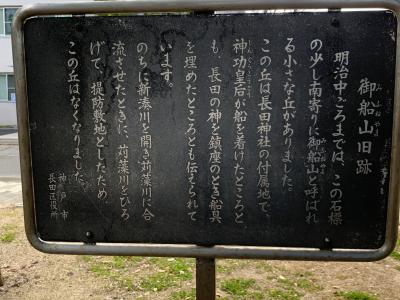 御船山旧跡
明治中ごろまでは、この石標
の少し南寄りに御船山と呼ばれ
る小さな丘がありました。
この丘は長田神社の付属地で、
神功皇后が船を着けたところと
も、長田の神を鎮座のとき船具
を埋めたところとも伝えられて
います。
のちに新湊川を開き苅藻川に合
流させたときに、苅藻川をひろ
げて、堤防敷地としたため
この丘はなくなりました。
神戸市
長田区役所